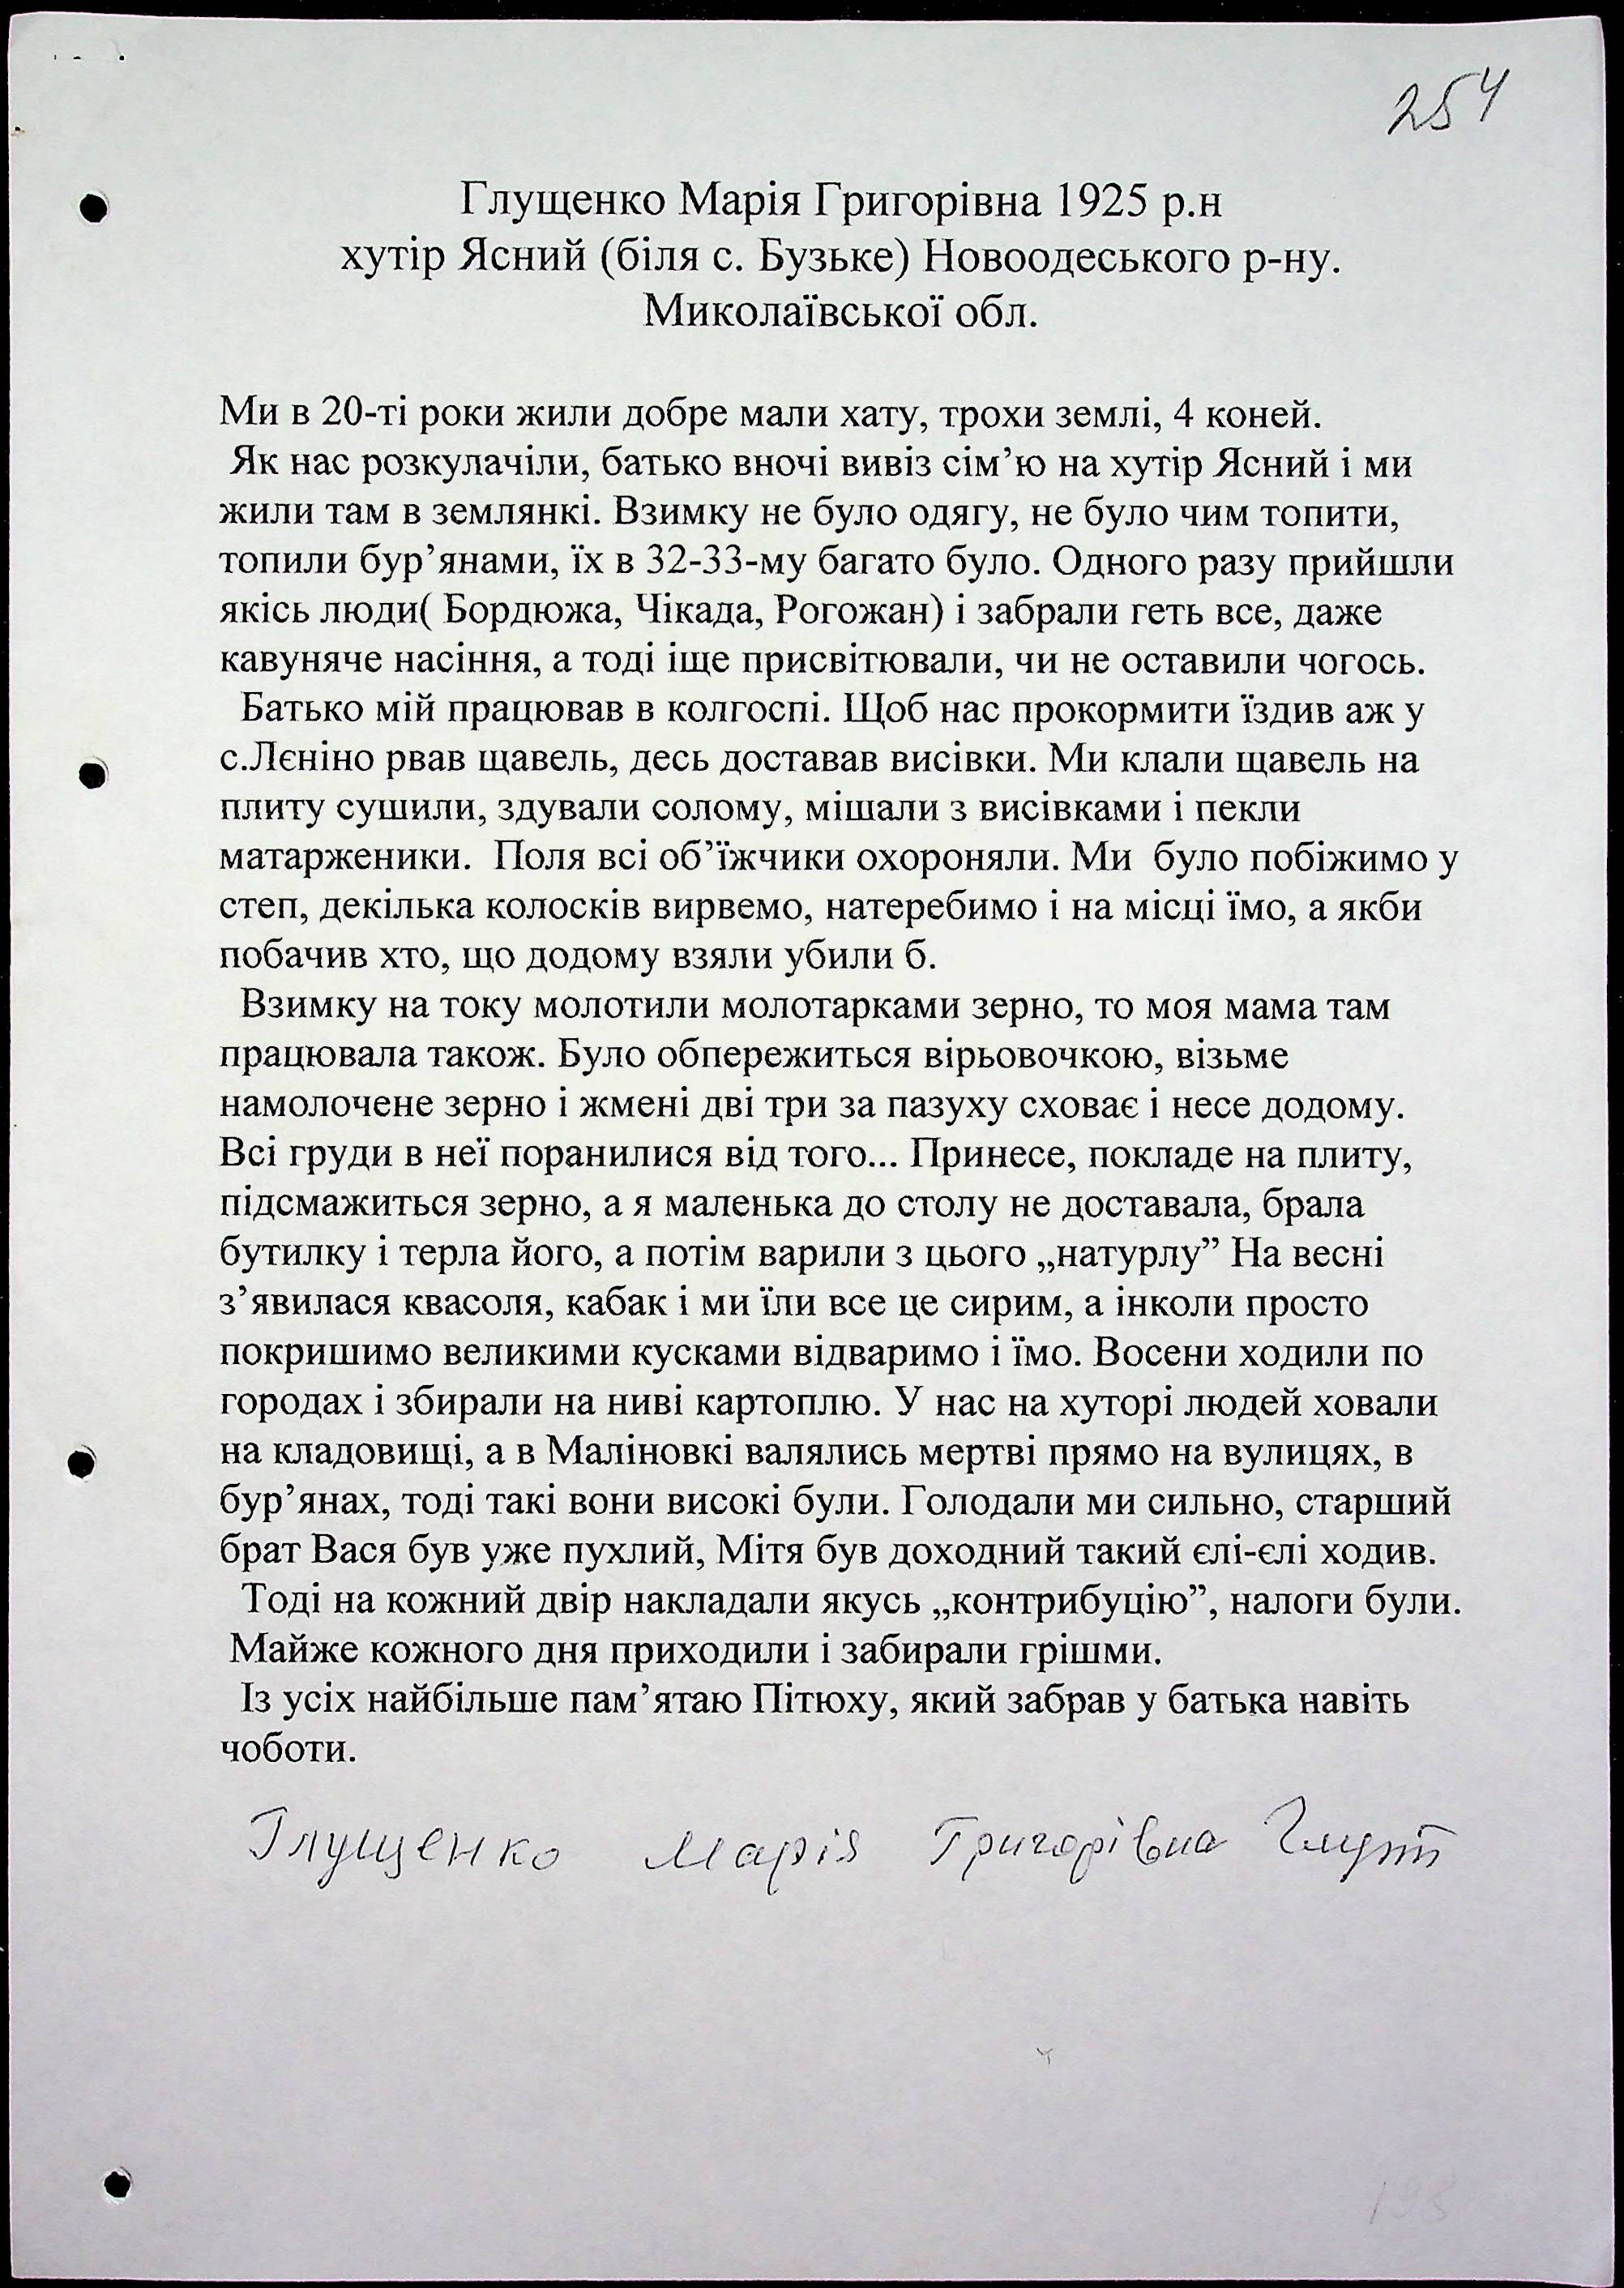 254
Глущенко Марія Григорівна 1925 р.н
хутір Ясний (біля с. Бузьке) Новоодеського р-ну.
Миколаївської обл.
Ми в 20-ті роки жили добре мали хату, трохи землі, 4 коней.
Як нас розкулачіли, батько вночі вивіз сім’ю на хутір Ясний і ми
жили там в землянкі. Взимку не було одягу, не було чим топити,
топили бур’янами, їх в 32-33-му багато було. Одного разу прийшли
якісь люди( Бордюжа, Чікада, Рогожан) і забрали геть все, даже
кавуняче насіння, а тоді іще присвітювали, чи не оставили чогось.
Батько мій працював в колгоспі. Щоб нас прокормити їздив аж у
с.Лєніно рвав щавель, десь доставав висівки. Ми клали щавель на
плиту сушили, здували солому, мішали з висівками і пекли
матарженики. Поля всі об’їжчики охороняли. Ми було побіжимо у
степ, декілька колосків вирвемо, натеребимо і на місці їмо, а якби
побачив хто, що додому взяли убили б.
Взимку на току молотили молотарками зерно, то моя мама там
працювала також. Було обпережиться вірьовочкою, візьме
намолочене зерно і жмені дві три за пазуху сховає і несе додому.
Всі груди в неї поранилися від того... Принесе, покладе на плиту,
підсмажиться зерно, а я маленька до столу не доставала, брала
бутилку і терла його, а потім варили з цього „натурлу” На весні
з’явилася квасоля, кабак і ми їли все це сирим, а інколи просто
покришимо великими кусками відваримо і їмо. Восени ходили по
городах і збирали на ниві картоплю. У нас на хуторі людей ховали
на кладовищі, а в Маліновкі валялись мертві прямо на вулицях, в
бур’янах, тоді такі вони високі були. Голодали ми сильно, старший
брат Вася був уже пухлий, Мітя був доходний такий єлі-єлі ходив.
Тоді на кожний двір накладали якусь „контрибуцію”, налоги були.
Майже кожного дня приходили і забирали грішми.
Із усіх найбільше пам’ятаю Пітюху, який забрав у батька навіть
чоботи.
Глущенко Марія Григорівна